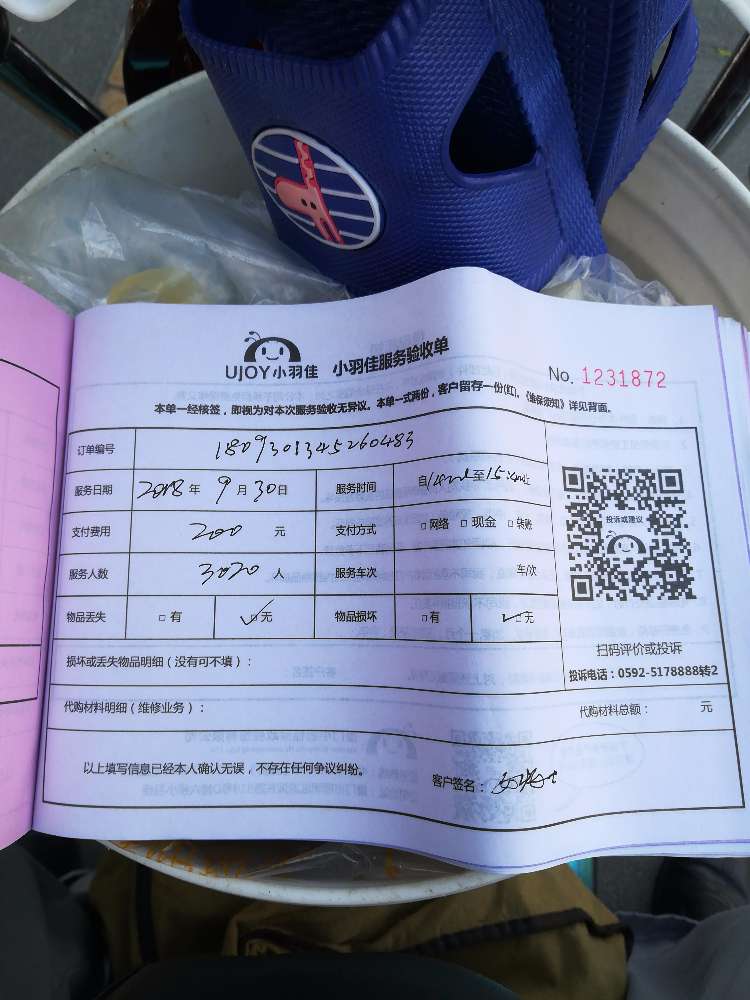 UJOY小羽佳 小羽佳服务验收单
No. 1231872
本单一经核签，即视为对本次服务验收无异议。本单一式两份，客户留存一份(红)。《维保须知》详见背面。
订单编号 1809301345260483
服务日期 2018年9月30日 服务时间 自 至15:
支付费用 200 元 支付方式 □网络 □现金 □转账
服务人数 3020 人 服务车次 车次
物品丢失 □有 □无 物品损坏 □有 □无
投诉或建议
扫码评价或投诉
投诉电话：0592-5178888转2
损坏或丢失物品明细（没有可不填）：
代购材料明细（维修业务）： 代购材料总额： 元
以上填写信息已经本人确认无误，不存在任何争议纠纷。 客户签名：